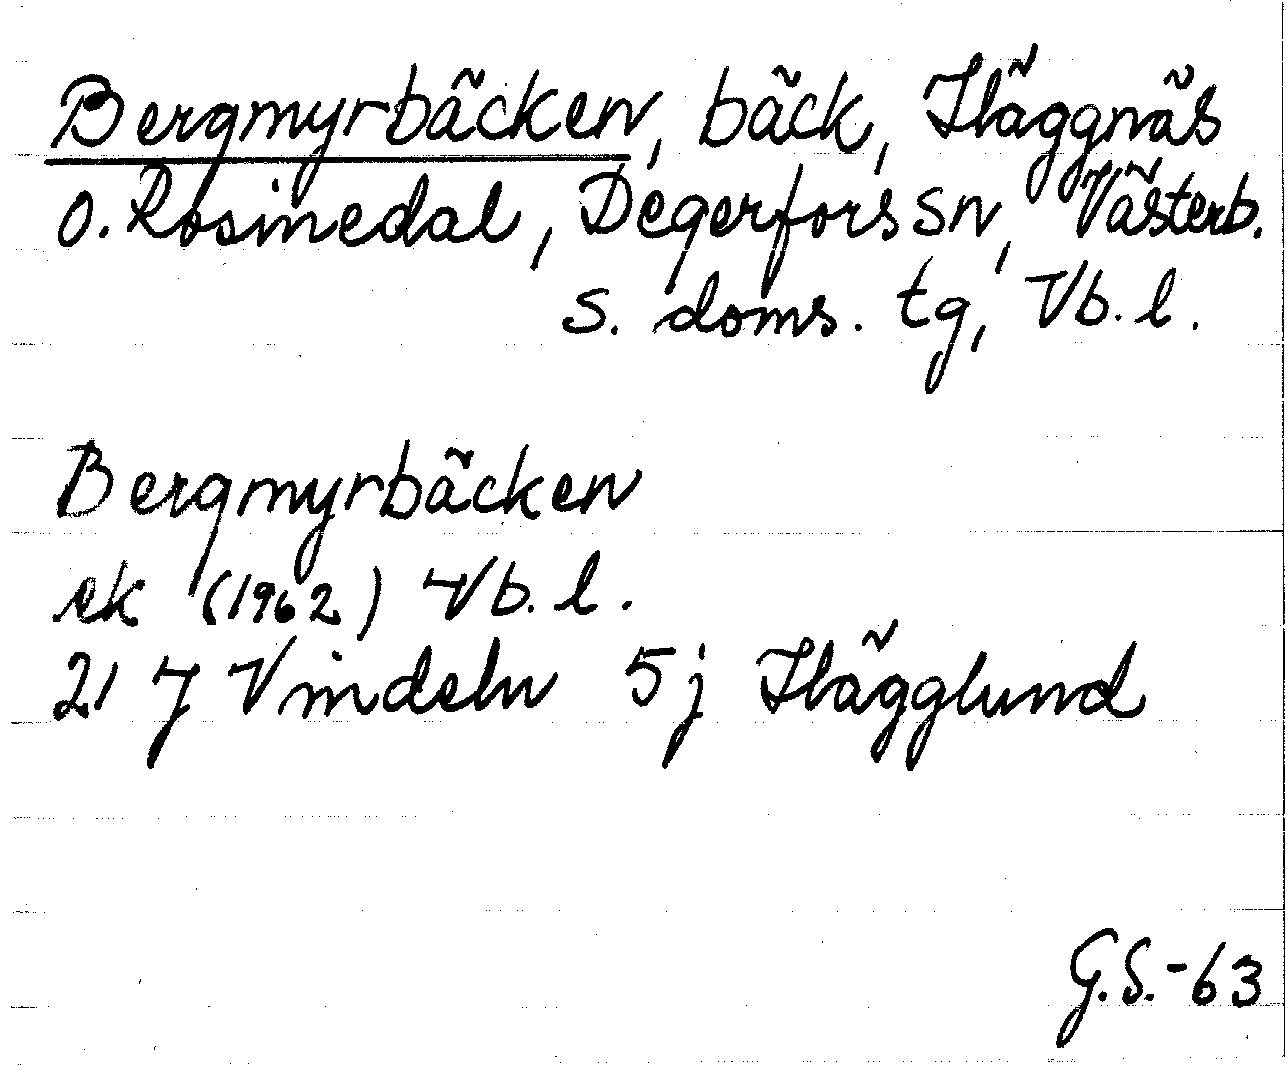 Bergmyrbäcken, bäck, Häggnäs
o. Rosinedal, Degerfors sn, Västerb.
s. doms. tg, Vb. l.
Bergmyrbäcken
ek (1962) Vb. l.
21 7 Vindeln 5j Hägglund
G.S.-63